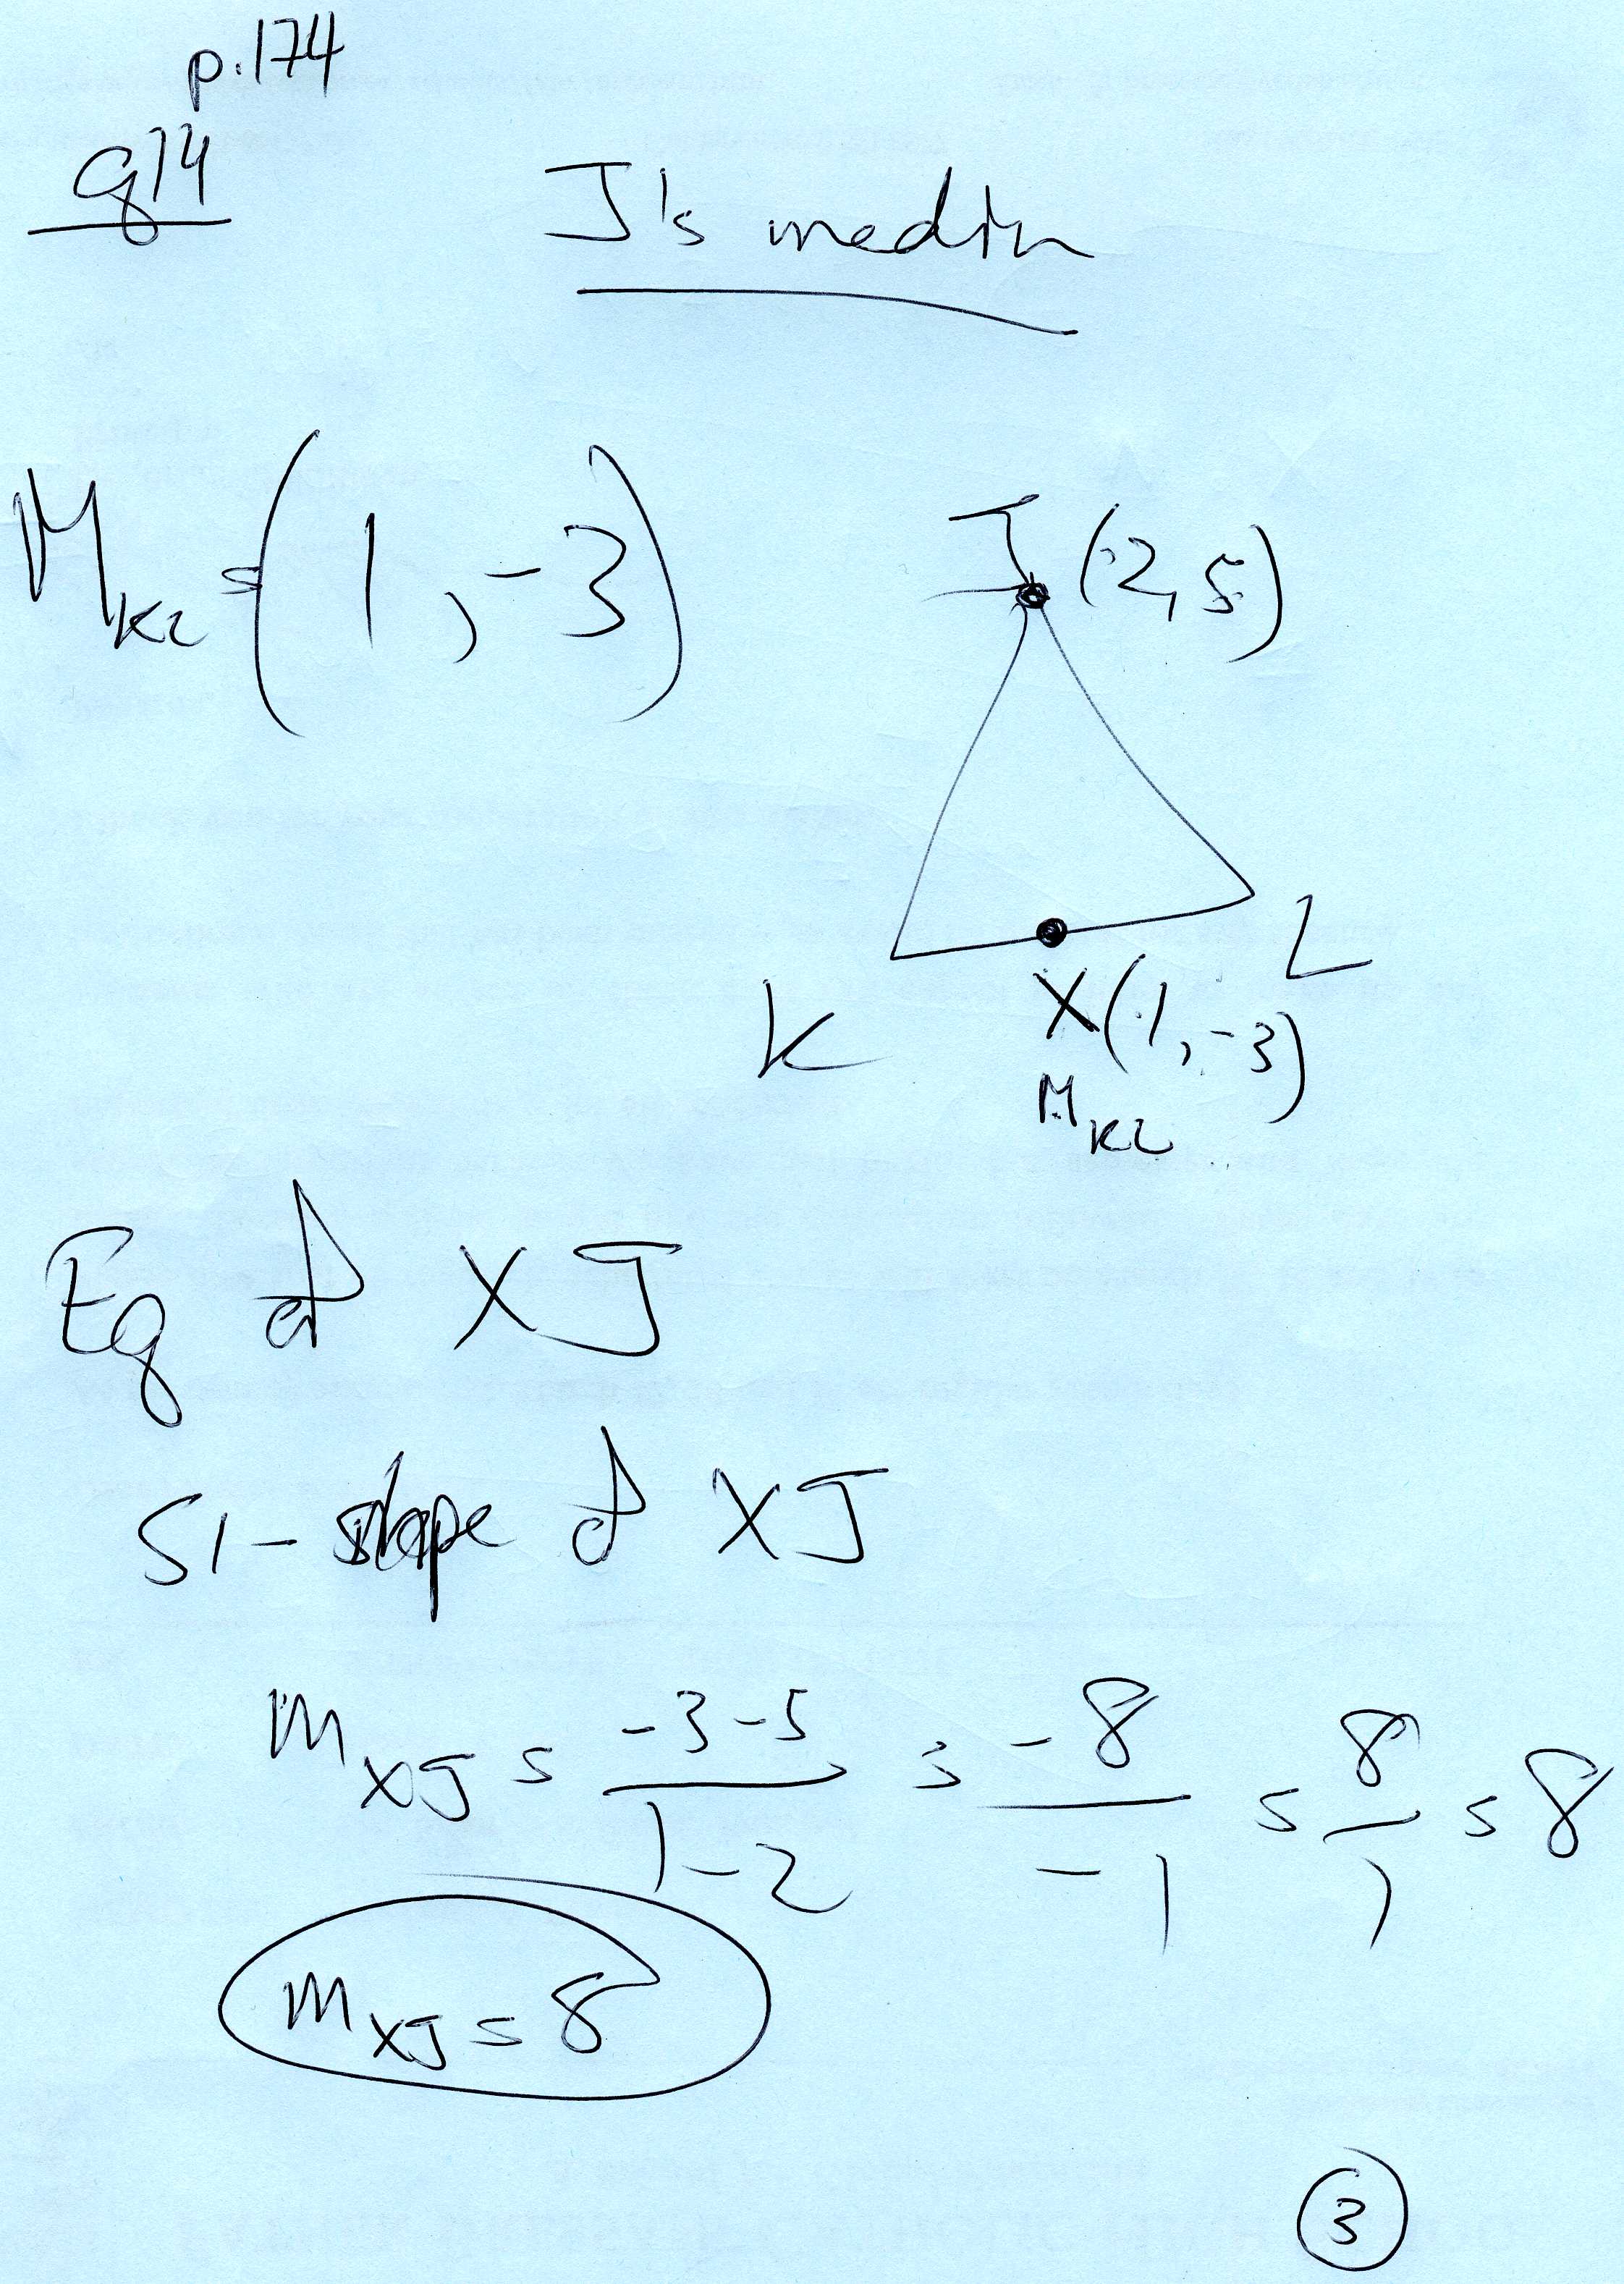 p.174
Q14
J's median
M_KL = (1, -3)
J (2,5)
K
L
X(1, -3)
M_KL
Eq of XJ
S1 - slope of XJ
m_XJ = (-3-5)/(1-2) = -8/-1 = 8/1 = 8
m_XJ = 8
3